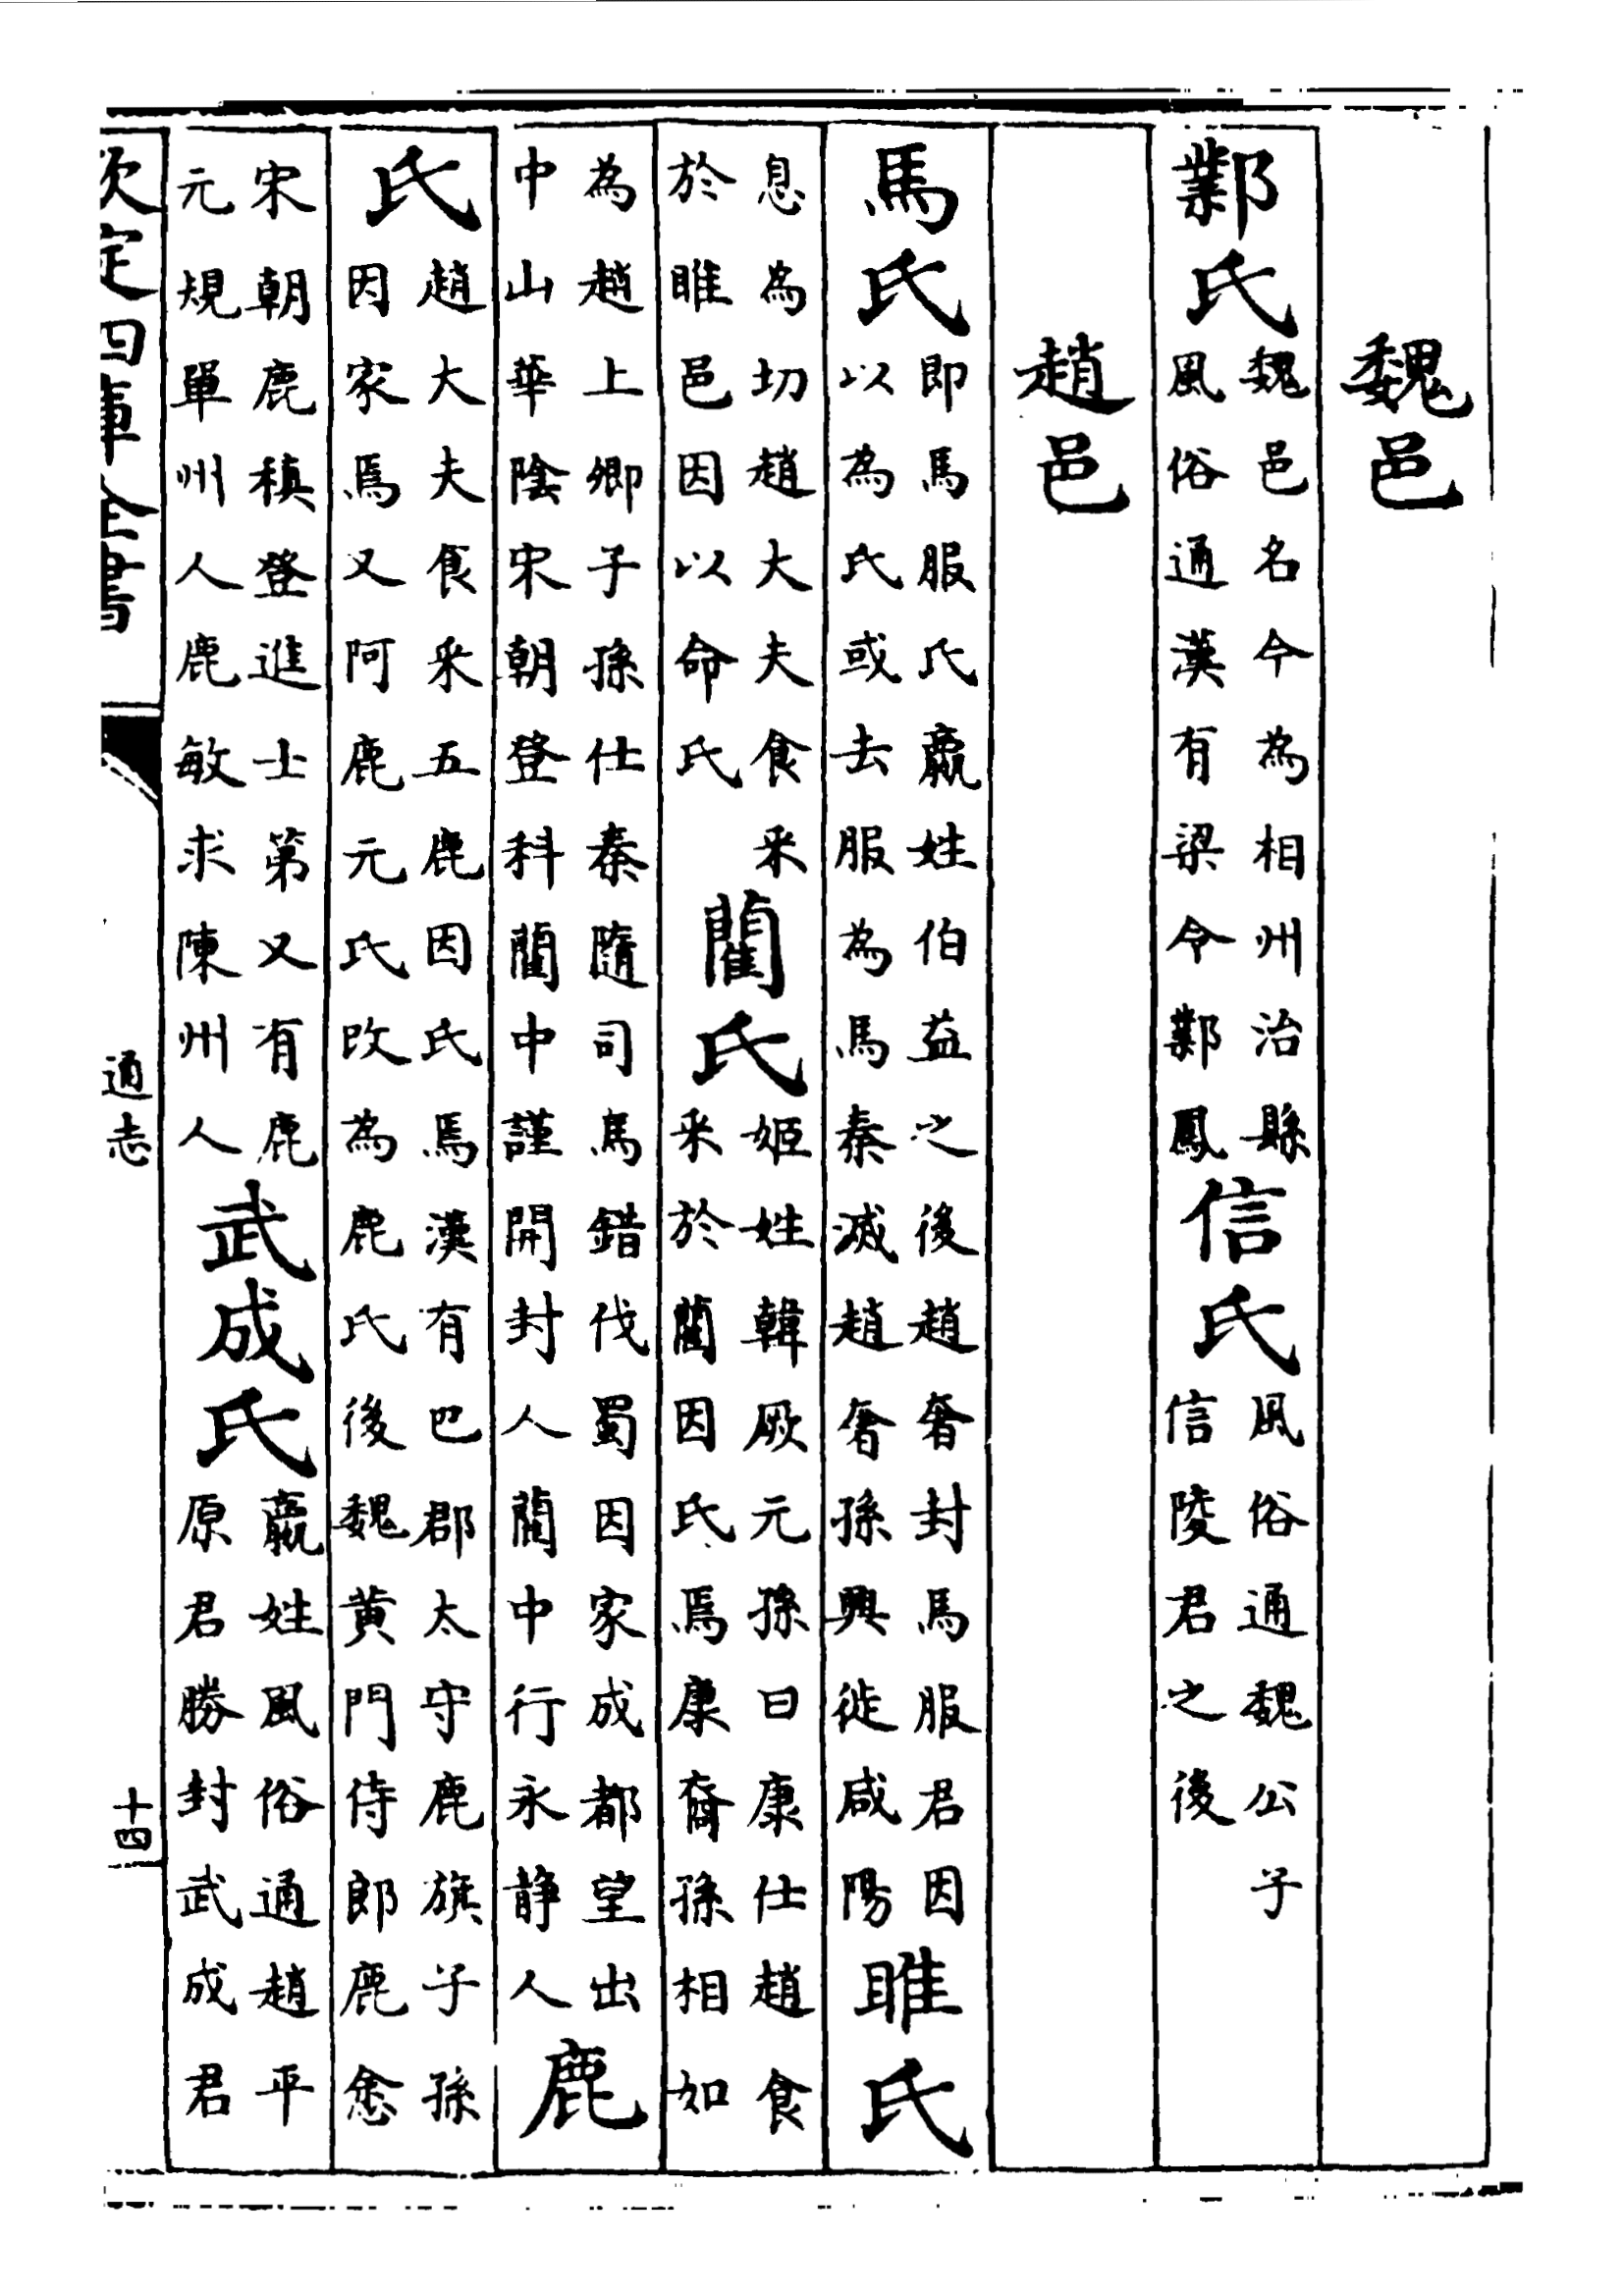 魏邑
鄴氏魏邑名今為相州治縣風俗通漢有梁令鄴鳳信氏風俗通魏公子信陵君之後
趙邑
馬氏即馬服氏嬴姓伯益之後趙奢封馬服君因以為氏或去服為馬秦滅趙奢孫興徙咸陽睢氏
息為切趙大夫食采於睢邑因以命氏藺氏姬姓韓厥元孫曰康仕趙食采於藺因氏焉康裔孫相如
為趙上卿子孫仕秦隨司馬錯伐蜀因家成都望出中山華陰宋朝登科藺中謹開封人藺中行永静人鹿
氏趙大夫食采五鹿因氏焉漢有巴郡太守鹿旗子孫因家焉又阿鹿元氏改為鹿氏後魏黄門侍郎鹿悆
宋朝鹿稹登進士第又有鹿元規單州人鹿敏求陳州人武成氏嬴姓風俗通趙平原君勝封武成君
欽定四庫全書
通志
十四